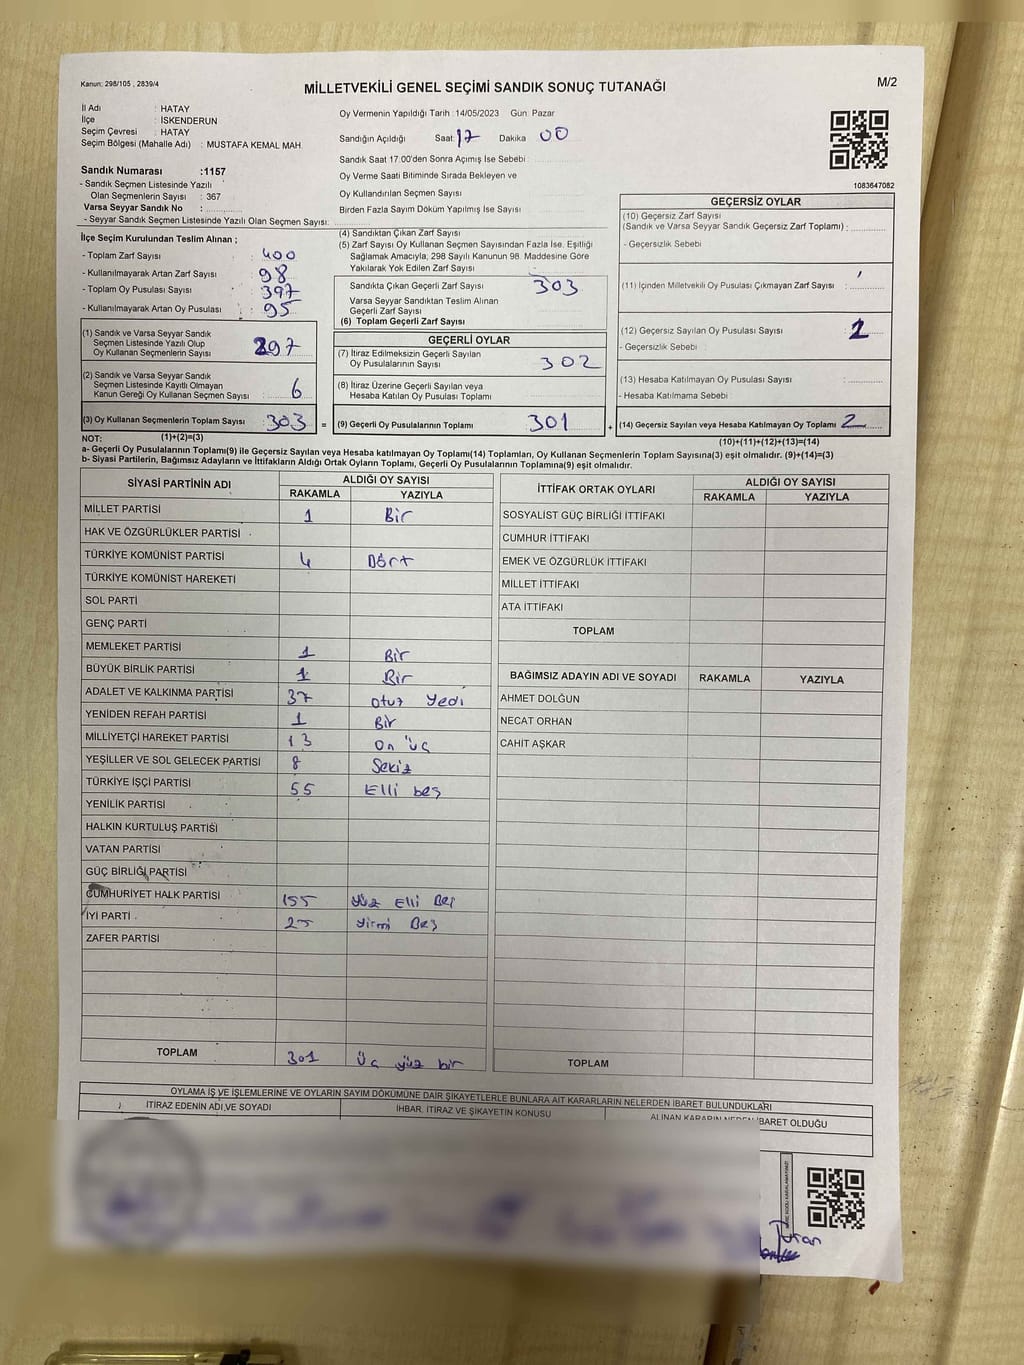 Kanun: 298/105 , 2839/4
MİLLETVEKİLİ GENEL SEÇİMİ SANDIK SONUÇ TUTANAĞI
M/2
İl Adı : HATAY
İlçe : İSKENDERUN
Seçim Çevresi : HATAY
Seçim Bölgesi (Mahalle Adı) : MUSTAFA KEMAL MAH.
Sandık Numarası :1157
- Sandık Seçmen Listesinde Yazılı
Olan Seçmenlerin Sayısı : 367
Varsa Seyyar Sandık No :
- Seyyar Sandık Seçmen Listesinde Yazılı Olan Seçmen Sayısı:
Oy Vermenin Yapıldığı Tarih :14/05/2023 Gün: Pazar
Sandığın Açıldığı Saat: 17 Dakika 00
Sandık Saat 17.00'den Sonra Açımış İse Sebebi :
Oy Verme Saati Bitiminde Sırada Bekleyen ve
Oy Kullandırılan Seçmen Sayısı
Birden Fazla Sayım Döküm Yapılmış İse Sayısı
1083647082
İlçe Seçim Kurulundan Teslim Alınan ;
- Toplam Zarf Sayısı : 400
- Kullanılmayarak Artan Zarf Sayısı : 98
- Toplam Oy Pusulası Sayısı : 397
- Kullanılmayarak Artan Oy Pusulası : 95
(1) Sandık ve Varsa Seyyar Sandık
Seçmen Listesinde Yazılı Olup
Oy Kullanan Seçmenlerin Sayısı 297
(2) Sandık ve Varsa Seyyar Sandık
Seçmen Listesinde Kayıtlı Olmayan
Kanun Gereği Oy Kullanan Seçmen Sayısı 6
(3) Oy Kullanan Seçmenlerin Toplam Sayısı : 303 =
(4) Sandıktan Çıkan Zarf Sayısı
(5) Zarf Sayısı Oy Kullanan Seçmen Sayısından Fazla İse, Eşitliği
Sağlamak Amacıyla; 298 Sayılı Kanunun 98. Maddesine Göre
Yakılarak Yok Edilen Zarf Sayısı
Sandıkta Çıkan Geçerli Zarf Sayısı 303
Varsa Seyyar Sandıktan Teslim Alınan
Geçerli Zarf Sayısı
(6) Toplam Geçerli Zarf Sayısı
GEÇERLİ OYLAR
(7) İtiraz Edilmeksizin Geçerli Sayılan
Oy Pusulalarının Sayısı 302
(8) İtiraz Üzerine Geçerli Sayılan veya
Hesaba Katılan Oy Pusulası Toplamı
(9) Geçerli Oy Pusulalarının Toplamı 301 +
GEÇERSİZ OYLAR
(10) Geçersiz Zarf Sayısı
(Sandık ve Varsa Seyyar Sandık Geçersiz Zarf Toplamı) :
- Geçersizlik Sebebi
(11) İçinden Milletvekili Oy Pusulası Çıkmayan Zarf Sayısı :
(12) Geçersiz Sayılan Oy Pusulası Sayısı : 2
- Geçersizlik Sebebi
(13) Hesaba Katılmayan Oy Pusulası Sayısı :
- Hesaba Katılmama Sebebi
(14) Geçersiz Sayılan veya Hesaba Katılmayan Oy Toplamı 2
NOT: (1)+(2)=(3)
(10)+(11)+(12)+(13)=(14)
a- Geçerli Oy Pusulalarının Toplamı(9) ile Geçersiz Sayılan veya Hesaba katılmayan Oy Toplamı(14) Toplamları, Oy Kullanan Seçmenlerin Toplam Sayısına(3) eşit olmalıdır. (9)+(14)=(3)
b- Siyasi Partilerin, Bağımsız Adayların ve İttifakların Aldığı Ortak Oyların Toplamı, Geçerli Oy Pusulalarının Toplamına(9) eşit olmalıdır.
SİYASİ PARTİNİN ADI
ALDIĞI OY SAYISI
RAKAMLA YAZIYLA
MİLLET PARTİSİ 1 Bir
HAK VE ÖZGÜRLÜKLER PARTİSİ
TÜRKİYE KOMÜNİST PARTİSİ 4 Dört
TÜRKİYE KOMÜNİST HAREKETİ
SOL PARTİ
GENÇ PARTİ
MEMLEKET PARTİSİ 1 Bir
BÜYÜK BİRLİK PARTİSİ 1 Bir
ADALET VE KALKINMA PARTİSİ 37 otuz yedi
YENİDEN REFAH PARTİSİ 1 Bir
MİLLİYETÇİ HAREKET PARTİSİ 13 On üç
YEŞİLLER VE SOL GELECEK PARTİSİ 8 Sekiz
TÜRKİYE İŞÇİ PARTİSİ 55 Elli beş
YENİLİK PARTİSİ
HALKIN KURTULUŞ PARTİSİ
VATAN PARTİSİ
GÜÇ BİRLİĞİ PARTİSİ
CUMHURİYET HALK PARTİSİ 155 Yüz Elli Beş
İYİ PARTİ 25 Yirmi Beş
ZAFER PARTİSİ
TOPLAM 301 Üç yüz bir
İTTİFAK ORTAK OYLARI
ALDIĞI OY SAYISI
RAKAMLA YAZIYLA
SOSYALİST GÜÇ BİRLİĞİ İTTİFAKI
CUMHUR İTTİFAKI
EMEK VE ÖZGÜRLÜK İTTİFAKI
MİLLET İTTİFAKI
ATA İTTİFAKI
TOPLAM
BAĞIMSIZ ADAYIN ADI VE SOYADI RAKAMLA YAZIYLA
AHMET DOLĞUN
NECAT ORHAN
CAHİT AŞKAR
TOPLAM
OYLAMA İŞ VE İŞLEMLERİNE VE OYLARIN SAYIM DÖKÜMÜNE DAİR ŞİKAYETLERLE BUNLARA AİT KARARLARIN NELERDEN İBARET BULUNDUKLARI
İTİRAZ EDENİN ADI VE SOYADI
İHBAR, İTİRAZ VE ŞİKAYETİN KONUSU
ALINAN KARARIN NEDEN İBARET OLDUĞU